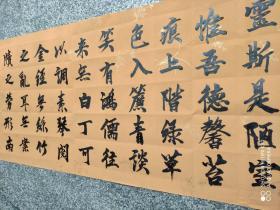 靈斯是陋室
惟吾德馨苔
痕上階綠草
色入簾青談
笑有鴻儒往
来無白丁可
以調素琴閱
金經無絲竹
之亂耳無案
牘之勞形南